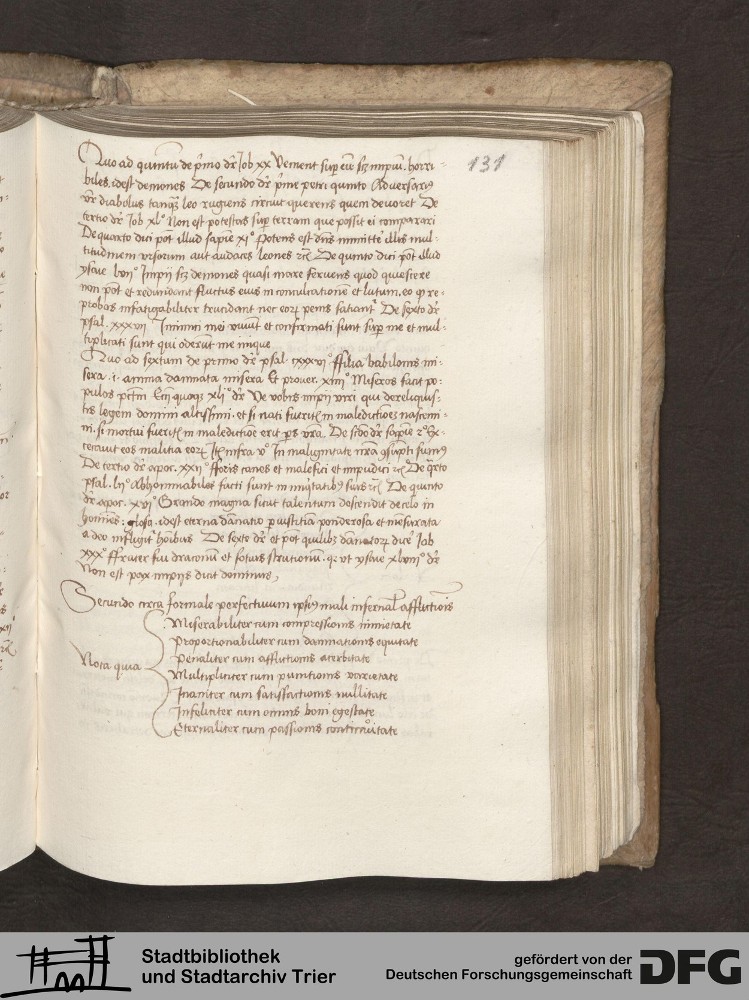 131
Quo ad quintū de p̄mo dr̄ Job xx Venient sup eū sꝫ impiū. horri-
biles. idest demones De secundo dr̄ p̄me petri quinto Adversariꝰ
vr̄ diabolus tanqꝫ leo rugiens circuit querens quem devoret De
tertio dr̄ Job xlº Non est potestas sup terram que possit ei comparari
De quarto dici pōt illud sapiē xiº Potens est dn̄s inmitte᷑ illis mul-
titudinem vrsorum aut audaces leones ꝛc̄ De quinto dici pōt illud
ysaie lviiº Impii sꝫ demones quasi mare fervens quod quiescere
non pōt et redundant fluctus eius in conculcationē et lutum. eo ꝙ re-
probos infatigabiliter trucidant nec eoꝝ penis satiant᷑ De sexto dr̄
psal. xxxvii Inimici mei vivūt et confirmati sunt sup me et mul-
tiplicati sunt qui oderūt me inique
Quo ad sextum de primo dr̄ psal. cxxxviº ffilia babilonis mi-
sera .i. anima damnata misera Et prover. xiiiiº Miseros facit po-
pulos pctm̄ Eccī quoqꝫ xliº dr̄ Ve vobis impii viri qui dereliquis-
tis legem domini altissimi. et si nati fueritꝭ in maledictioēz nascemi-
ni. si mortui fueritꝭ in maledictiōe erit p̄s vrā. De scdō dr̄ sapiē 2º Ex-
cecavit eos malitia eoꝝ Itꝫ infra vº In malignitate nr̄a ꝯsūpti sumꝰ
De tertio dr̄ apoc. xxiiº fforis canes et malefici et impudici ꝛc̄ De qͣrto
psal. liiº Abhominabiles facti sunt in iniqtatibꝰ suis ꝛc̄ De quinto
dr̄ apoc. xviº Grando magna sicut talentum descendit de celo in
homines: glosa. idest eterna dānatio p iustitiā ponderosa et mēsurata
a deo infligit᷑ hōibus De sexto dr̄ et pōt quilibꝫ dānatoꝝ dicē Job
xxxº ffrater fui draconū et socius strutionū. qꝛ vt ysaie xlviiiº dr̄
Non est pax impiis dicit dominus,
Secundo circa formale perfectiuum ipsiꝰ mali infernalꝭ afflictiōis
Nota quia
Miserabiliter cum compressionis inmietate
Proportionabiliter cum damnationis equitate
Penaliter cum afflictionis acerbitate
Multipliciter cum punitionis varietate
Inaniter cum satisfactionis nullitate
Infeliciter cum omnis boni egestate
Eternaliter cum passionis continuitate
Stadtbibliothek
und Stadtarchiv Trier
gefördert von der
Deutschen Forschungsgemeinschaft
DFG